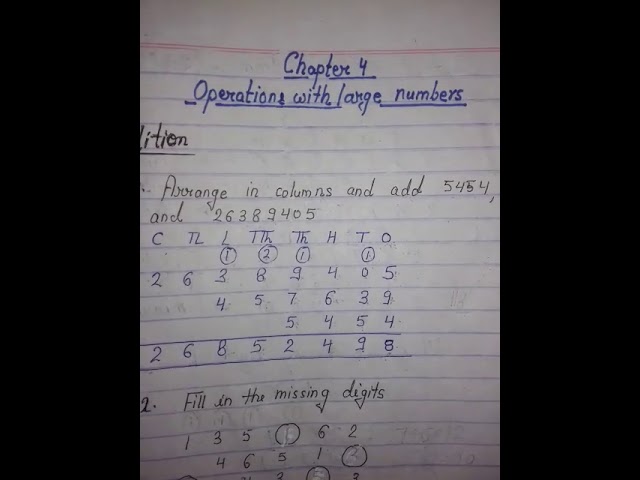 Chapter 4
Operations with large numbers
dition
Arrange in columns and add 5454,
and 26389405
C TL L TTh Th H T O
1 2 1 1
2 6 3 8 9 4 0 5
4 5 7 6 3 9
5 4 5 4
2 6 8 5 2 4 9 8
2. Fill in the missing digits
1 3 5 1 6 2
4 6 5 1